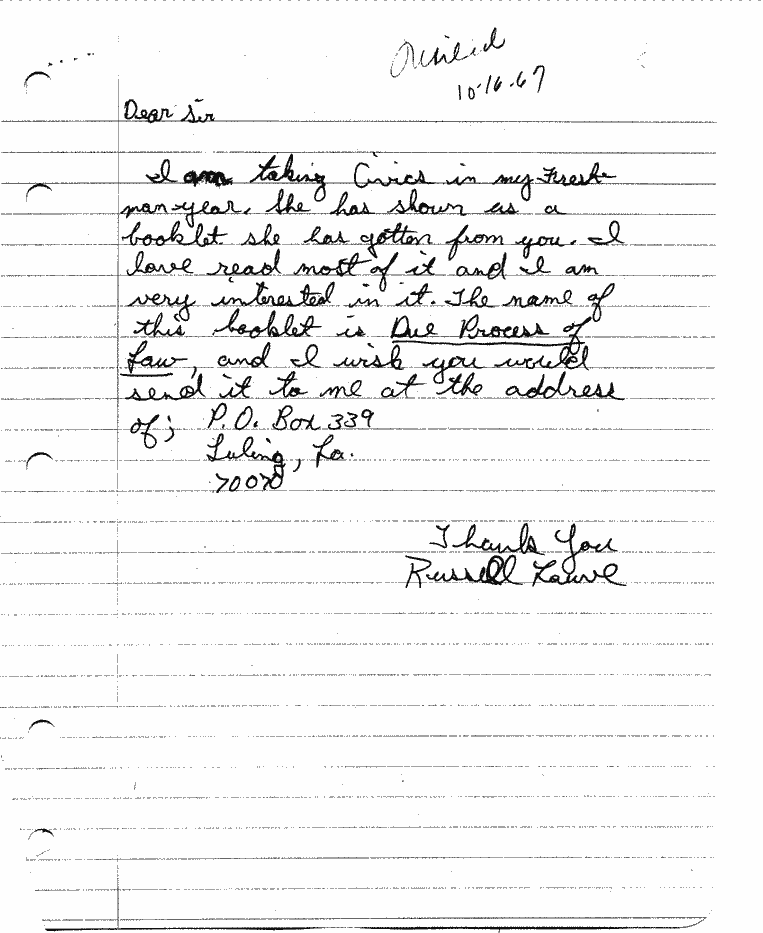 10-16-67
Dear Sir
I am taking Civics in my Fresh-
man year. She has shown us a
booklet she has gotten from you. I
have read most of it and I am
very interested in it. The name of
this booklet is Due Process of
Law, and I wish you would
send it to me at the address
of; P.O. Box 339
Luling, La.
70070
Thank You
Russell